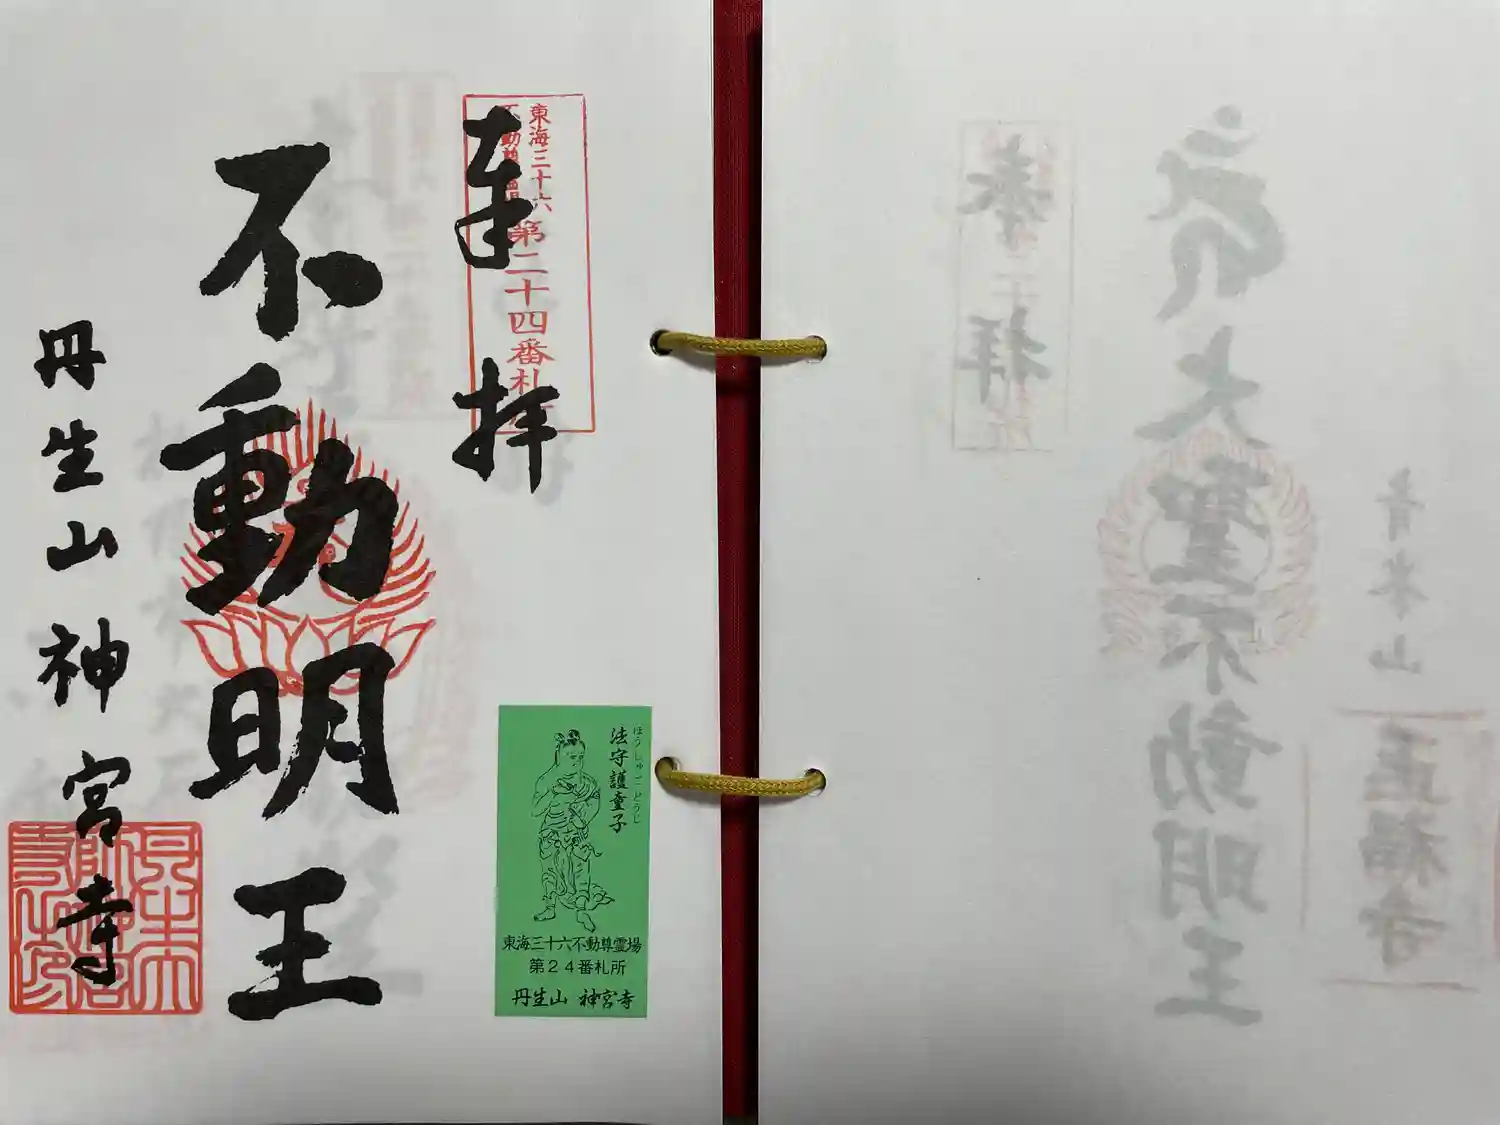 奉拝
東海三十六
不動尊霊場
第二十四番札所
不動明王
丹生山神宮寺
ほうしゅごどうじ
法守護童子
東海三十六不動尊霊場
第24番札所
丹生山 神宮寺
奉拝
大聖不動明王
青米山
正福寺